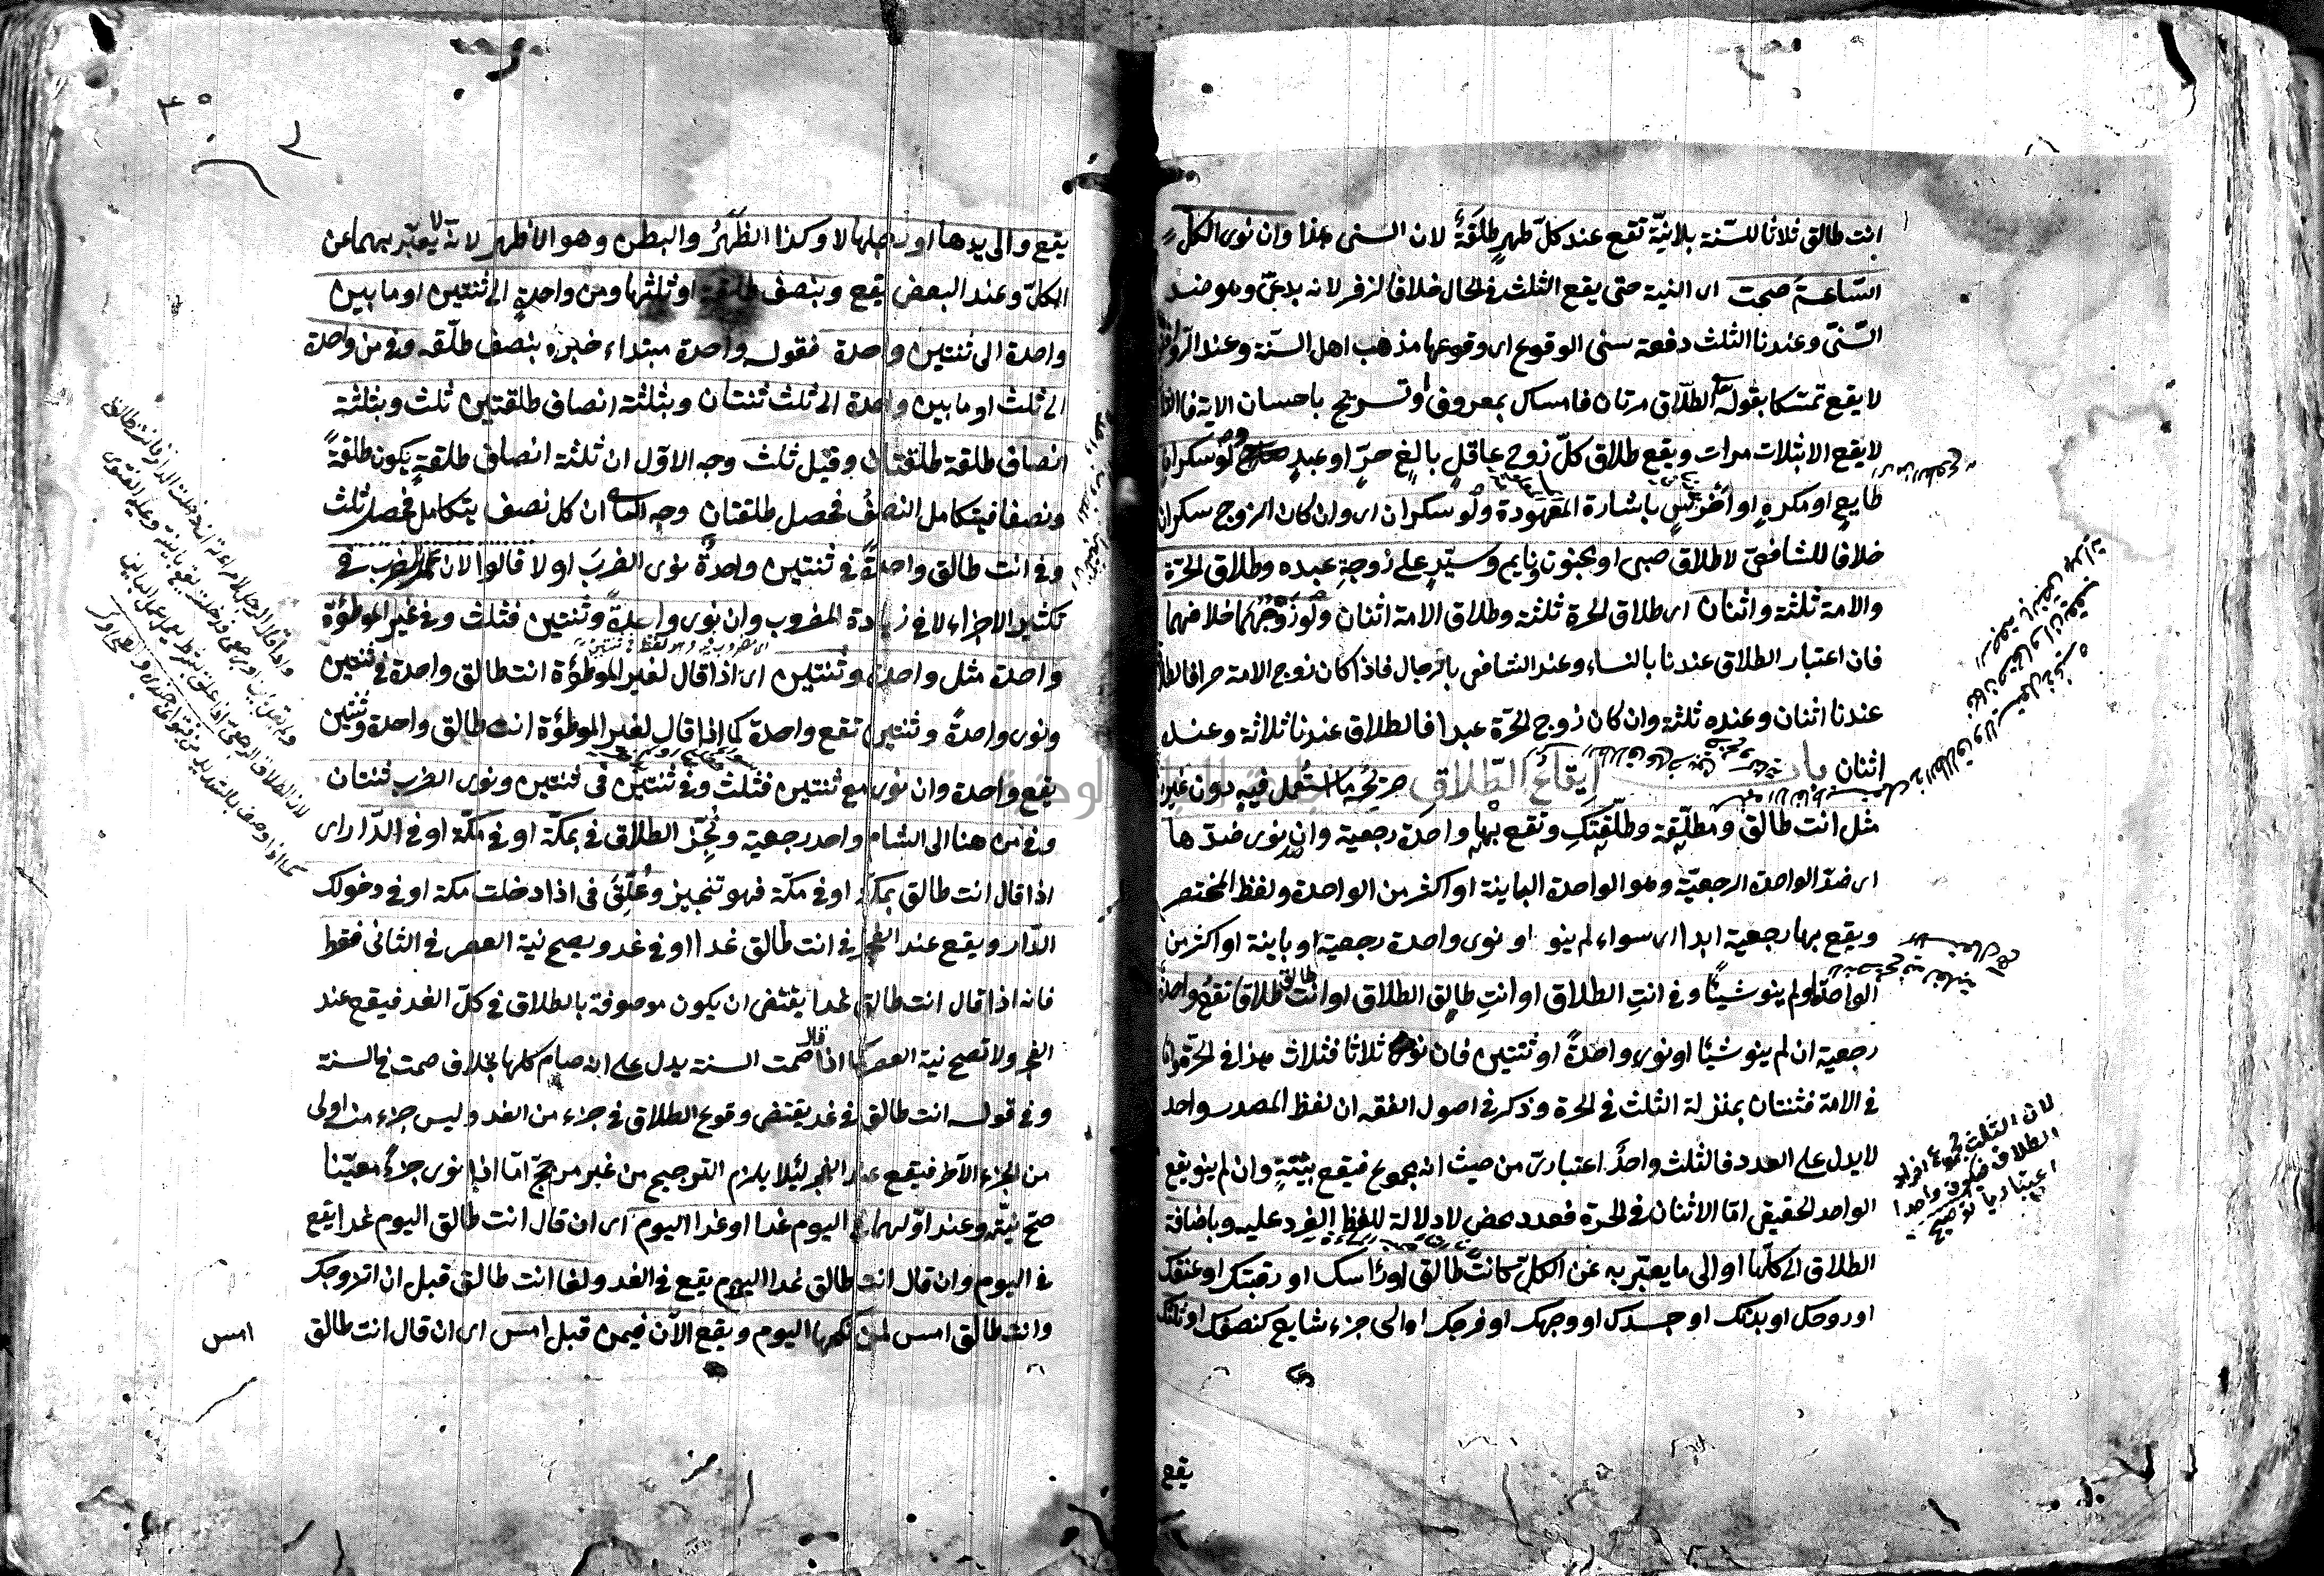 انت طالق ثلاثا للسّنة بلانيّة تقع عند كلّ طهرٍ طلقةٌ لان السنى هذا وان نوى الكلّ
السّاعة صحت اى النية حتى يقع الثلث فى الحال خلافا لزفر لانه بدعىّ وهو ضد
السّنىّ وعندنا الثلث دفعة سنى الوقوع اى وقوعها مذهب اهل السنّة وعند الروافض
لا يقع تمسّكا بقوله الطلاق مرتان فامساك بمعروف او تسريح باحسان الاية فالطلاق
لا يقع الا بثلاث مرات ويقع طلاق كلّ زوج عاقلٍ بالغٍ حرٍّ او عبدٍ ولو سكران
طايعٍ او مكرهٍ او اخرسٍ باشارة المعهودة ولو سكران اى وان كان الزوج سكران
خلافا للشافعىّ لا طلاق صبى او مجنون ونايم وسيّدٍ على زوجةِ عبده وطلاق الحرّة
والامة ثلثة واثنان اى طلاق الحرة ثلثة وطلاق الامة اثنان ولو زوجهما خلافهما
فان اعتبار الطلاق عندنا بالنساء وعند الشافعى بالرجال فاذا كان زوج الامة حرا فالطلاق
عندنا اثنان وعنده ثلثة وان كان زوج الحرّة عبدا فالطلاق عندنا ثلاثة وعنده
اثنان باب ايقاع الطّلاق صريحُه ما استُعمل فيه دون غيره
مثل انت طالق ومطلّقة وطلّقتكِ وتقع بها واحدة رجعية وان نوى ضدّها
اى ضدّ الواحدة الرجعيّة وهو الواحدة الباينة او اكثر من الواحدة ولفظ المختصر
ويقع بها رجعية ابدا اى سواء لم ينو او نوى واحدة رجعية او باينة او اكثر من
الواحدة او لم ينو شيئًا وفى انتِ الطلاق او انتِ طالق الطلاق او انت طالق طلاقا تقع واحدة
رجعية ان لم ينو شيئا او نوى واحدةً او ثنتين فان نوى ثلاثا فثلاث هذا فى الحرّة واما
فى الامة فثنتان بمنزلة الثلث فى الحرة وذكر فى اصول الفقه ان لفظ المصدر واحد
لا يدل على العدد فالثلث واحدٌ اعتبارىّ من حيث انه مجموع فيقع بنيّتهِ وان لم ينو يقع
الواحد الحقيقى امّا الاثنان فى الحرّة فعدد محض لا دلالة للفظ المفرد عليه وباضافة
الطلاق الى كلّها او الى ما يعبّر به عن الكلّ كانت طالق او رأسك او رقبتك او عنقك
او روحك او بدنك او جسدك او وجهك او فرجك او الى جزء شايع كنصفك او ثلثك
يقع
لان الثلث مجموع افراد
الطلاق فيكون واحدا
اعتباريا توضيح
يقع والى يدها او رجلها لا وكذا الظّهرُ والبطن وهو الاظهر لانه لا يعبّر بهما عن
الكلّ وعند البعض يقع وبنصف طلقة او ثلثها ومن واحدةٍ الى ثنتين او ما بين
واحدة الى ثنتين واحدة فقوله واحدة مبتداء خبره بنصف طلقه وفى من واحدة
الى ثلث او ما بين واحدة الى ثلث ثنتان وبثلثة انصاف طلقتين ثلث وبثلثة
انصاف طلقة طلقتان وقيل ثلث وجه الاوّل ان ثلثة انصاف طلقةٍ يكون طلقةً
ونصفا فيتكامل النصفُ فحصل طلقتان وجه الثانى ان كل نصف يتكامل فحصل ثلث
وفى انت طالق واحدةً فى ثنتين واحدةٌ نوى الضرب او لا قالوا لان عمل الضرب فى
تكثير الاجزاء لا فى زيادة المضروب وان نوى واحدةً وثنتين فثلث وفى غير الموطؤة
واحدة مثل واحدة وثنتين اى اذا قال لغير الموطؤة انت طالق واحدة فى ثنتين
ونوى واحدةً وثنتين تقع واحدة كما اذا قال لغير الموطؤة انت طالق واحدة وثنتين
يقع واحدة وان نوى مع ثنتين فثلث وفى ثنتين فى ثنتين ونوى الضرب ثنتان
وفى من هنا الى الشام واحد رجعية ونُجّز الطلاق فى بمكّة او فى مكّة او فى الدّار اى
اذا قال انت طالق بمكّة او فى مكّة فهو تنجيز وعُلّق فى اذا دخلت مكة او فى دخولك
الدّار ويقع عند الفجر فى انت طالق غدا او فى غد ويصح نية العصر فى الثانى فقط
فانه اذا قال انت طالق غدا يقتضى ان يكون موصوفة بالطلاق فى كلّ الغد فيقع عند
الفجر ولا تصح نية العصر كما اذا قال صمت السنة يدل على انه صام كلها بخلاف صمت فى السنة
وفى قوله انت طالق فى غد يقتضى وقوع الطلاق فى جزء من الغد وليس جزء منه اولى
من الجزء الآخر فيقع عند الفجر لئلا يلزم الترجيح من غير مرجّح امّا اذا نوى جزءً معيّنا
صحّ نيّته وعند اوّلهما فى اليوم غدا او غدا اليوم اى ان قال انت طالق اليوم غدا يقع
فى اليوم وان قال انت طالق غدا اليوم يقع فى الغد ولغا انت طالق قبل ان اتزوجك
وانت طالق امس لمن نكحها اليوم ويقع الآن فيمن قبل امس اى ان قال انت طالق
امس